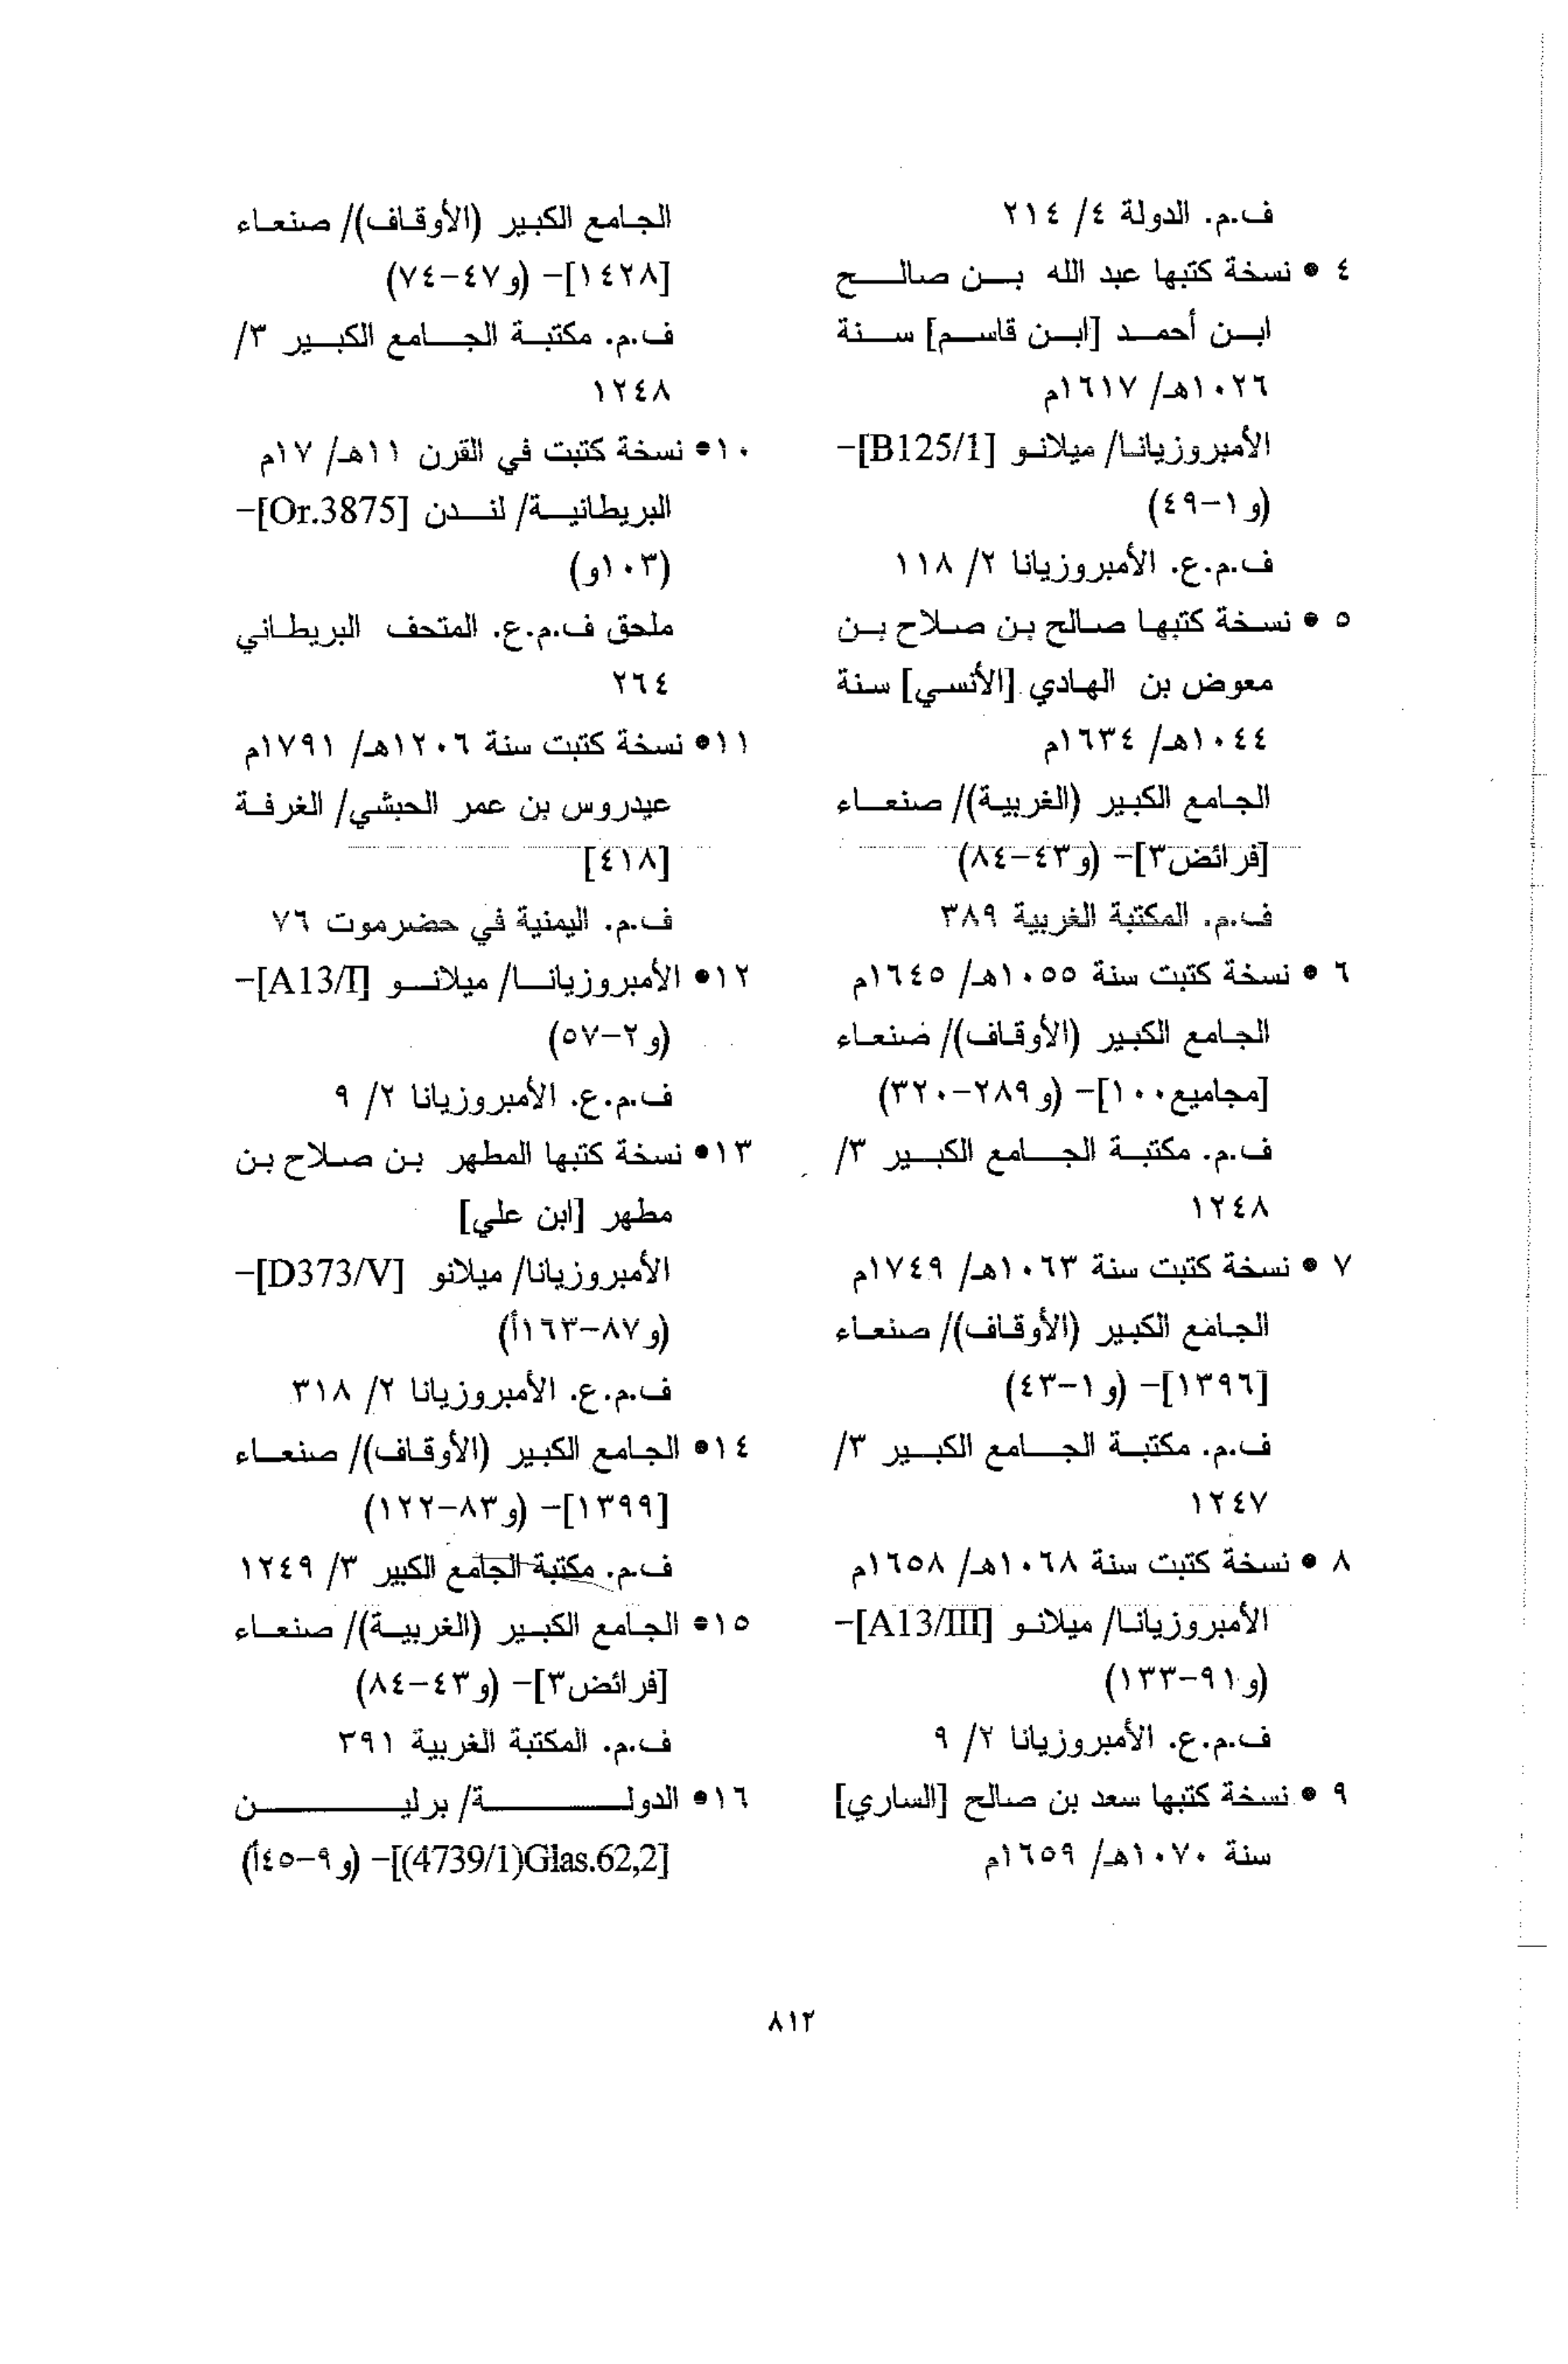 ف.م. الدولة ٤/ ٢١٤
٤ • نسخة كتبها عبد الله بن صالح
ابن أحمد [ابن قاسم] سنة
١٠٢٦هـ/ ١٦١٧م
الأمبروزيانا/ ميلانو [B125/1]-
(و١-٤٩)
ف.م.ع. الأمبروزيانا ٢/ ١١٨
٥ • نسخة كتبها صالح بن صلاح بن
معوض بن الهادي [الأنسي] سنة
١٠٤٤هـ/ ١٦٣٤م
الجامع الكبير (الغربية)/ صنعاء
[فرائض٣]- (و٤٣-٨٤)
ف.م. المكتبة الغربية ٣٨٩
٦ • نسخة كتبت سنة ١٠٥٥هـ/ ١٦٤٥م
الجامع الكبير (الأوقاف)/ صنعاء
[مجاميع١٠٠]- (و٢٨٩-٣٢٠)
ف.م. مكتبة الجامع الكبير ٣/
١٢٤٨
٧ • نسخة كتبت سنة ١٠٦٣هـ/ ١٧٤٩م
الجامع الكبير (الأوقاف)/ صنعاء
[١٣٩٦]- (و١-٤٣)
ف.م. مكتبة الجامع الكبير ٣/
١٢٤٧
٨ • نسخة كتبت سنة ١٠٦٨هـ/ ١٦٥٨م
الأمبروزيانا/ ميلانو [A13/III]-
(و٩١-١٣٣)
ف.م.ع. الأمبروزيانا ٢/ ٩
٩ • نسخة كتبها سعد بن صالح [الساري]
سنة ١٠٧٠هـ/ ١٦٥٩م
الجامع الكبير (الأوقاف)/ صنعاء
[١٤٢٨]- (و٤٧-٧٤)
ف.م. مكتبة الجامع الكبير ٣/
١٢٤٨
١٠• نسخة كتبت في القرن ١١هـ/ ١٧م
البريطانية/ لندن [Or.3875]-
(١٠٣و)
ملحق ف.م.ع. المتحف البريطاني
٢٦٤
١١• نسخة كتبت سنة ١٢٠٦هـ/ ١٧٩١م
عيدروس بن عمر الحبشي/ الغرفة
[٤١٨]
ف.م. اليمنية في حضرموت ٧٦
١٢• الأمبروزيانا/ ميلانو [A13/I]-
(و٢-٥٧)
ف.م.ع. الأمبروزيانا ٢/ ٩
١٣• نسخة كتبها المطهر بن صلاح بن
مطهر [ابن علي]
الأمبروزيانا/ ميلانو [D373/V]-
(و٨٧-١٦٣أ)
ف.م.ع. الأمبروزيانا ٢/ ٣١٨
١٤• الجامع الكبير (الأوقاف)/ صنعاء
[١٣٩٩]- (و٨٣-١٢٢)
ف.م. مكتبة الجامع الكبير ٣/ ١٢٤٩
١٥• الجامع الكبير (الغربية)/ صنعاء
[فرائض٣]- (و٤٣-٨٤)
ف.م. المكتبة الغربية ٣٩١
١٦• الدولة/ برلين
[Glas.62,2(4739/1)]- (و٩-٤٥أ)
٨١٢